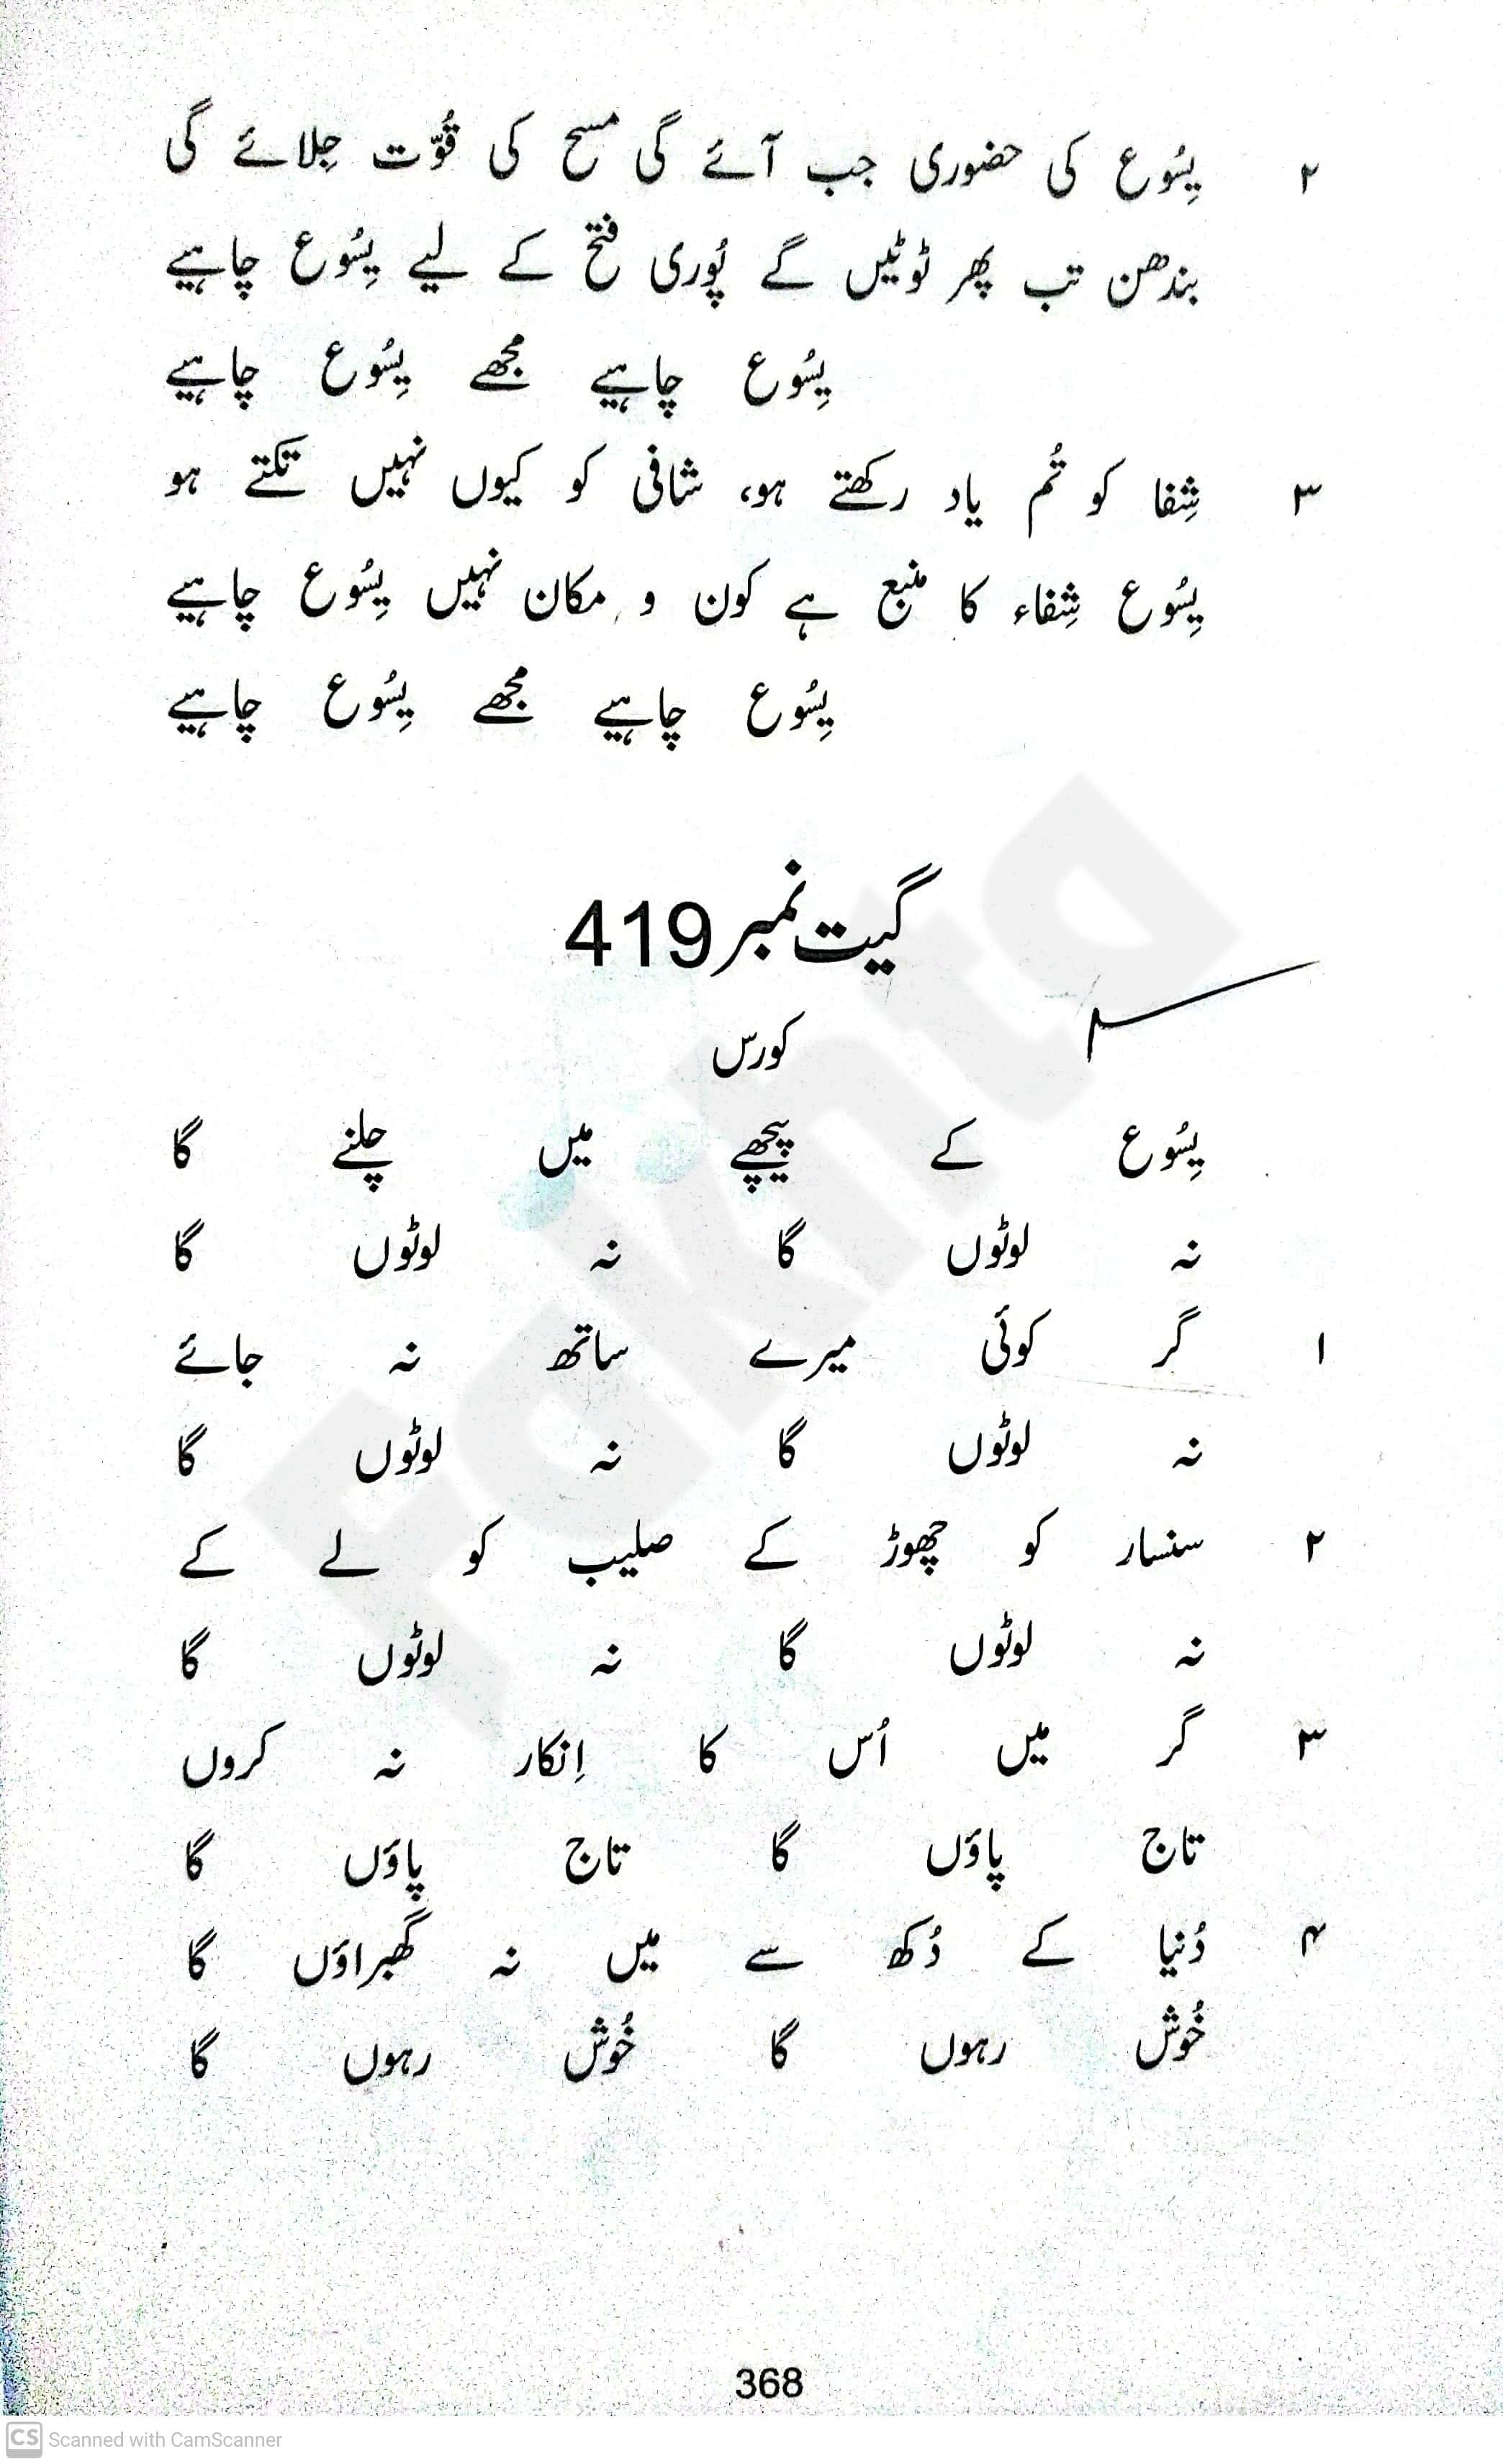 ۲ یِسُوع کی حضوری جب آئے گی مسح کی قُوّت جِلائے گی
بندھن تب پھر ٹوٹیں گے پُوری فتح کے لیے یِسُوع چاہیے
یِسُوع چاہیے مجھے یِسُوع چاہیے
۳ شِفا کو تُم یاد رکھتے ہو، شافی کو کیوں نہیں تکتے ہو
یِسُوع شِفاء کا منبع ہے کون و مکان نہیں یِسُوع چاہیے
یِسُوع چاہیے مجھے یِسُوع چاہیے
گیت نمبر 419
کورس
یِسُوع کے پیچھے میں چلنے گا
نہ لوٹوں گا نہ لوٹوں گا
۱ گر کوئی میرے ساتھ نہ جائے
نہ لوٹوں گا نہ لوٹوں گا
۲ سنسار کو چھوڑ کے صلیب کو لے کے
نہ لوٹوں گا نہ لوٹوں گا
۳ گر میں اُس کا اِنکار نہ کروں
تاج پاؤں گا تاج پاؤں گا
۴ دُنیا کے دُکھ سے میں نہ گھبراؤں گا
خُوش رہوں گا خُوش رہوں گا
368
CS Scanned with CamScanner
Fakhta